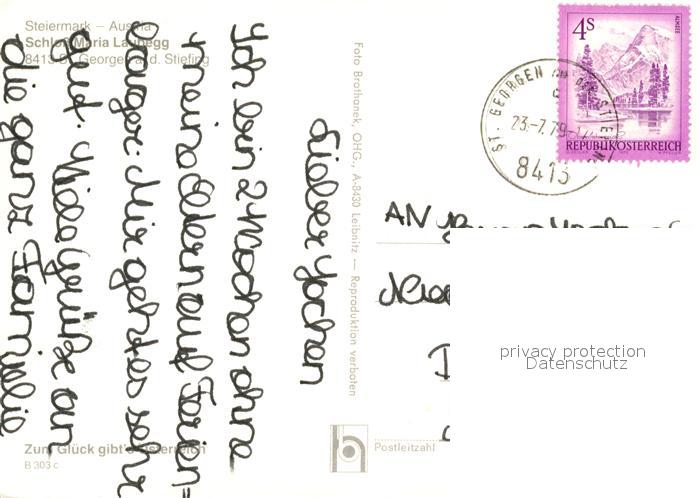 Steiermark – Austria
Schloß Maria Laubegg
8413 St. Georgen a. d. Stiefing
Lieber Jochen
Ich bin 2 Wochen ohne
meine Eltern auf Ferien=
lager. Mir geht es sehr
gut. Viele Grüße an
die ganze Familie
Zum Glück gibt's Österreich
B 303 c
Foto Brothanek, OHG., A-8430 Leibnitz — Reproduktion verboten
4S
ALMSEE
REPUBLIK ÖSTERREICH
ST. GEORGEN
23.-7.79-17
8413
AN
privacy protection
Datenschutz
Postleitzahl